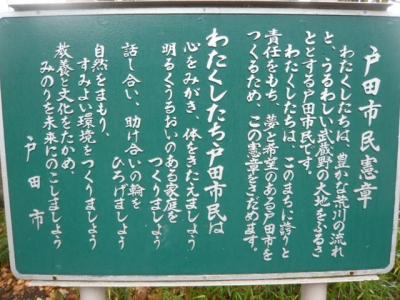 戸田市民憲章
わたくしたちは、豊かな荒川の流れ
と、うるわしい武蔵野の大地をふるさ
ととする戸田市民です。
わたくしたちは、このまちに誇りと
責任をもち、夢と希望のある戸田市を
つくるため、この憲章をさだめます。
わたくしたち戸田市民は
心をみがき、体をきたえましょう
明るくうるおいのある家庭を
つくりましょう
話し合い、助け合いの輪を
ひろげましょう
自然をまもり、
すみよい環境をつくりましょう
教養と文化をたかめ、
みのりを未来にのこしましょう
戸田市